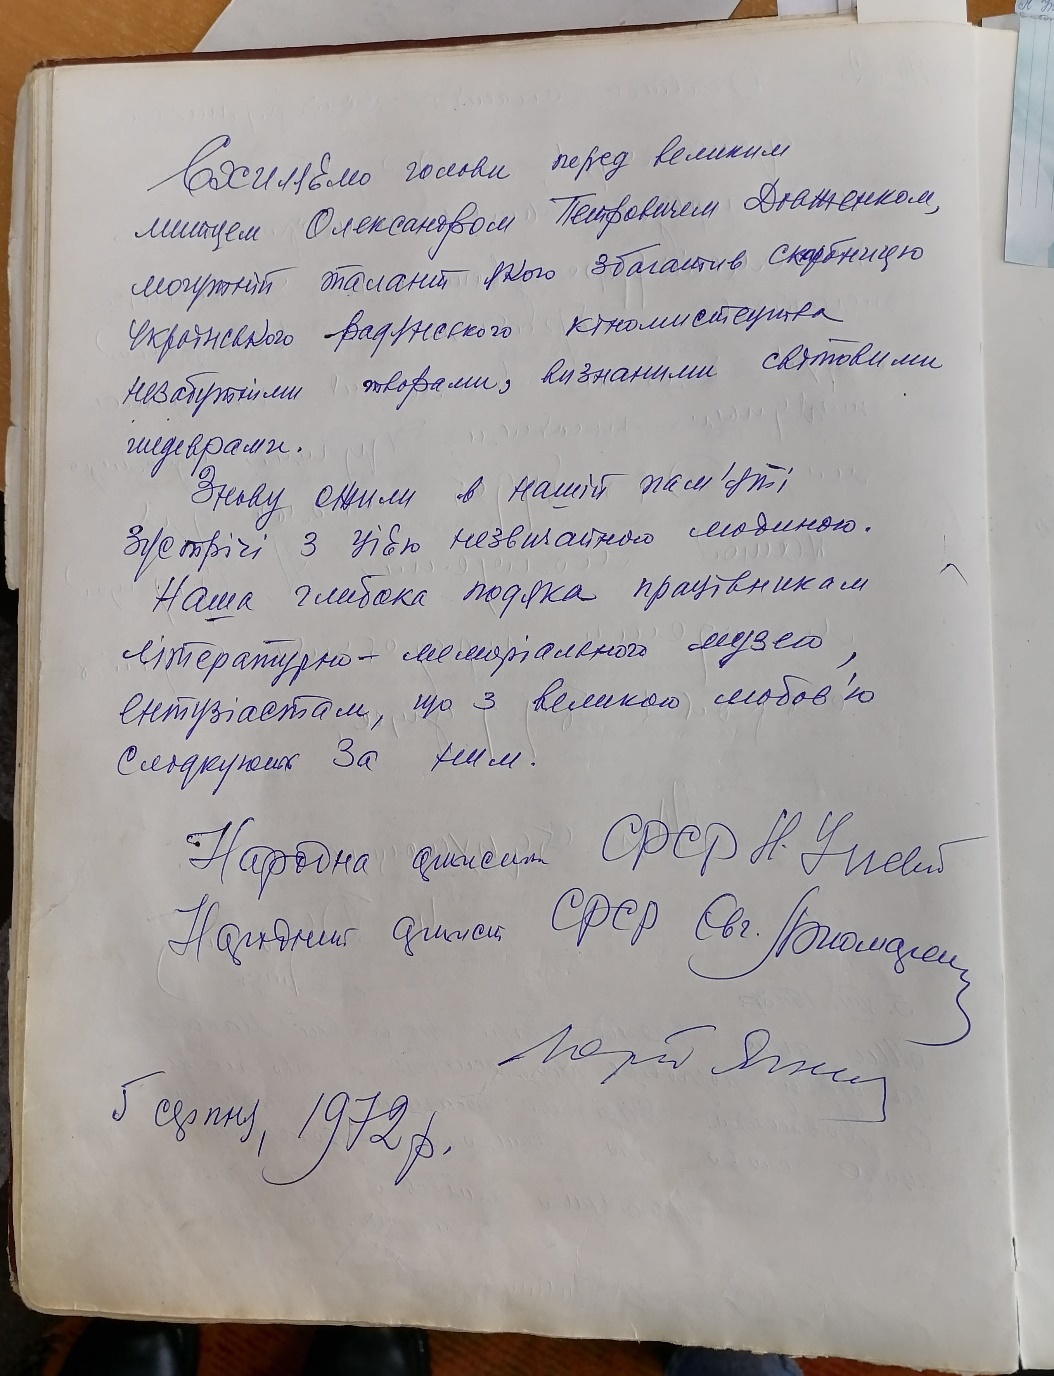 Схиляємо голови перед великим
митцем Олександром Петровичем Довженком,
могутній талант якого збагатив скарбницю
українського радянського кіномистецтва
незабутніми творами, визнаними світовими
шедеврами.
Знову ожили в нашій пам'яті
зустрічі з цією незвичайною людиною.
Наша глибока подяка працівникам
літературно-меморіального музею,
ентузіастам, що з великою любов'ю
слідкують за ним.
Народна артистка СРСР Н. Ужвій
Народний артист СРСР Євг. Пономаренко
5 серпня, 1972 р.